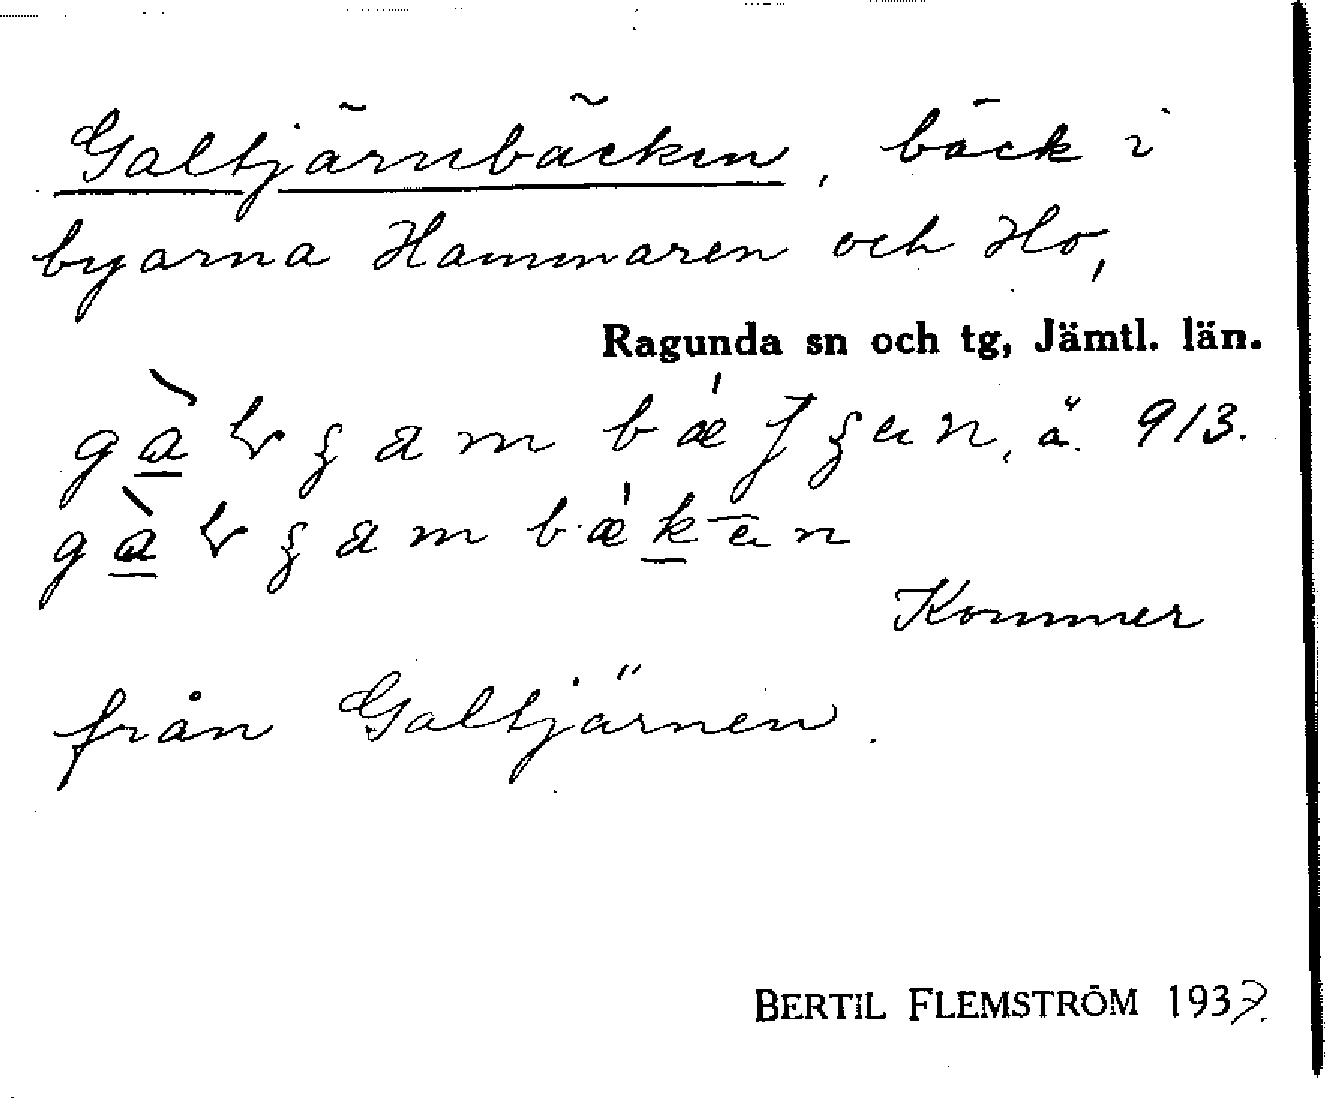 Galtjärnbäcken, bäck i
byarna Hammaren och Ho,
Ragunda sn och tg, Jämtl. län.
ä. 913.
Kommer
från Galtjärnen.
BERTIL FLEMSTRÖM 1937.